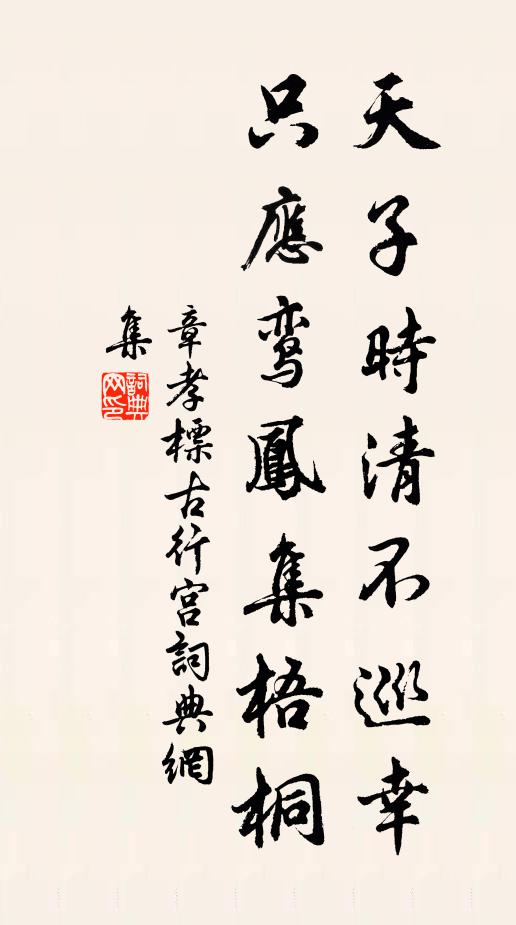 天子時清不巡幸
只應鸾鳳集梧桐
章孝標古行宫詞典網
集
詞典网印